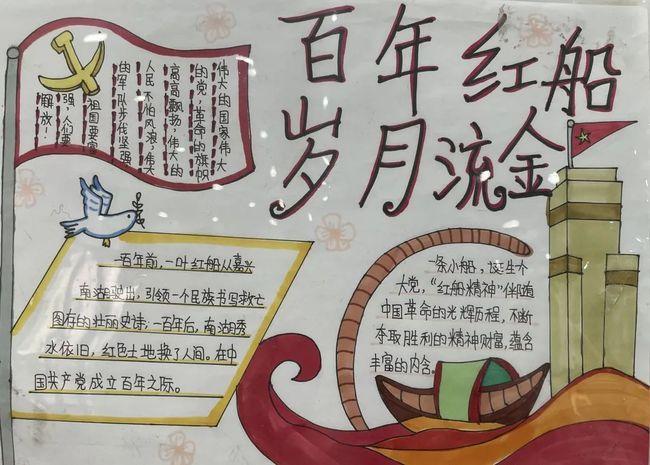 百年红船
岁月流金
伟大的国家伟大
的党，革命的旗帜
高高飘扬，伟大的
人民不怕风浪，伟大
的军队步伐坚强
祖国要富
强，人们要
解放！
一百年前，一叶红船从嘉兴
南湖驶出，引领一个民族书写救亡
图存的壮丽史诗；一百年后，南湖秀
水依旧，红色土地换了人间。在中
国共产党成立百年之际。
一条小船，诞生个
大党，“红船精神”伴随
中国革命的光辉历程，不断
夺取胜利的精神财富，蕴含
丰富的内含。